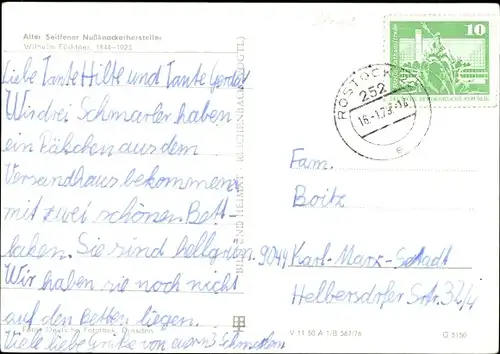 Alter Seiffener Nußknackerhersteller
Wilhelm Füchtner, 1844–1923
Liebe Tante Hilte und Tante Gerda!
Wir drei Schmarler haben
ein Päkchen aus dem
Versandhaus bekommen
mit zwei schönen Bett-
laken. Sie sind hellgrün.
Wir haben sie noch nicht
auf den Betten liegen.
Viele liebe Grüße von euren 3 Schmarlern
Foto: Deutsche Fotothek, Dresden
BILD UND HEIMAT REICHENBACH (VOGTL)
10
ROSTOCK
252
e
Fam.
Boitz
9044 Karl-Marx-Schtadt
Helbersdorfer Str. 32/4
V 11 50 A 1/B 567/76
G 5150